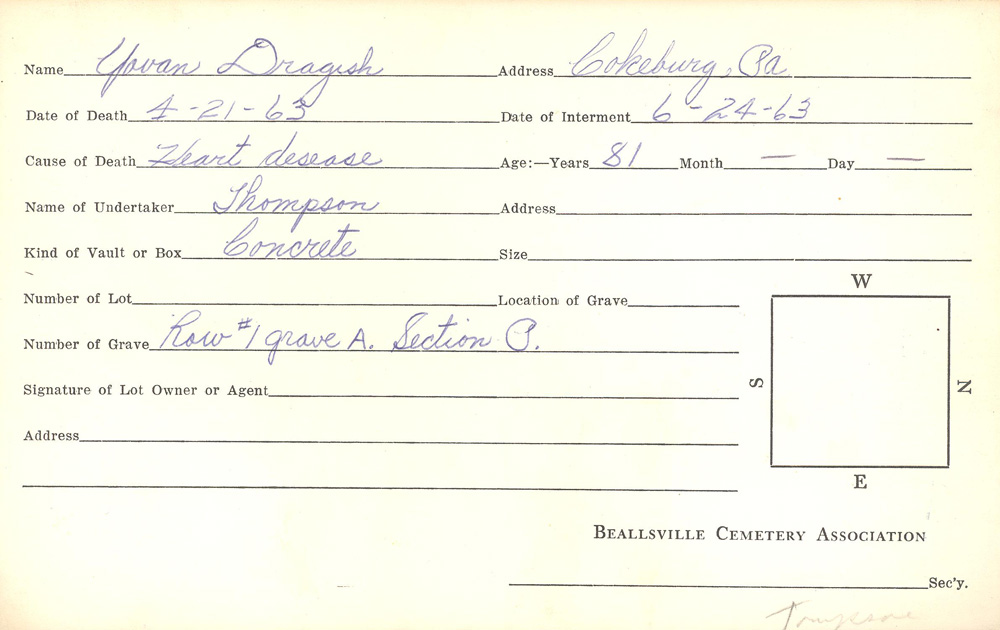 Name Yovan Dragish Address Cokeburg, Pa
Date of Death 4-21-63 Date of Interment 6-24-63
Cause of Death Heart desease Age:—Years 81 Month — Day —
Name of Undertaker Thompson Address
Kind of Vault or Box Concrete Size
W
Number of Lot Location of Grave
Number of Grave Row #1 grave A. Section P.
S N
Signature of Lot Owner or Agent
Address
E
BEALLSVILLE CEMETERY ASSOCIATION
Sec'y.